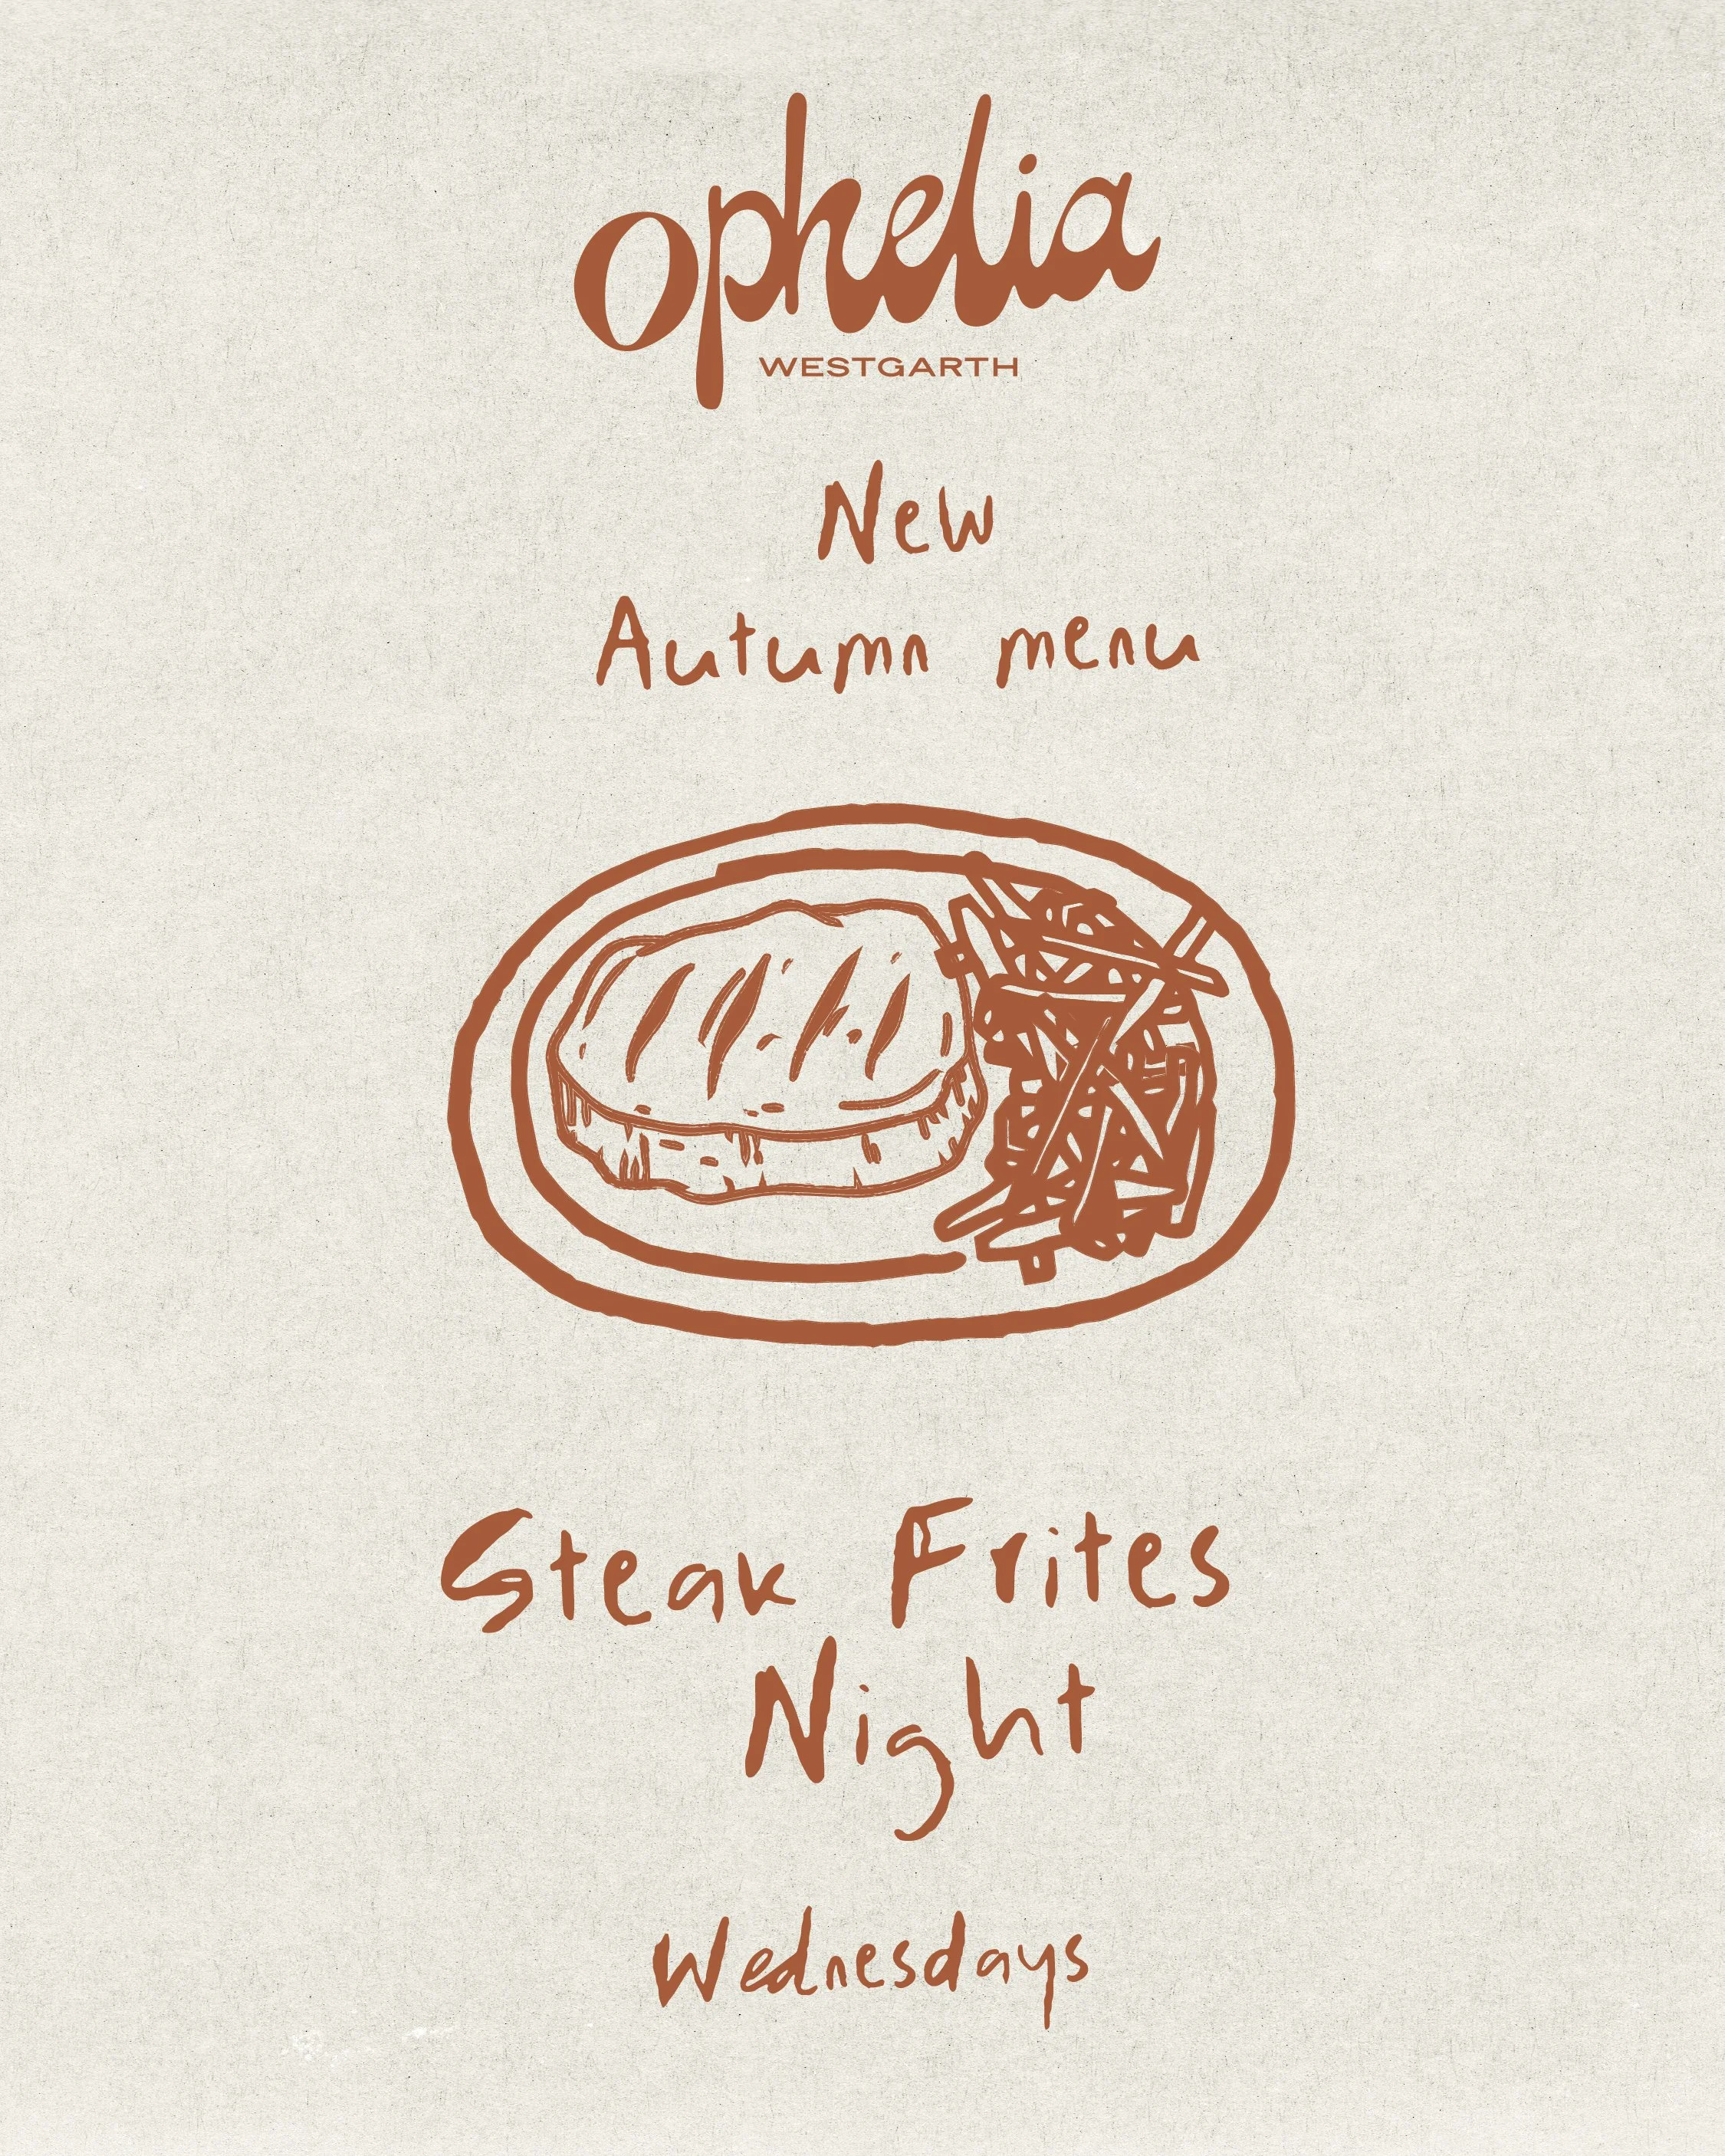 ophelia
WESTGARTH
New
Autumn menu
Steak Frites
Night
Wednesdays